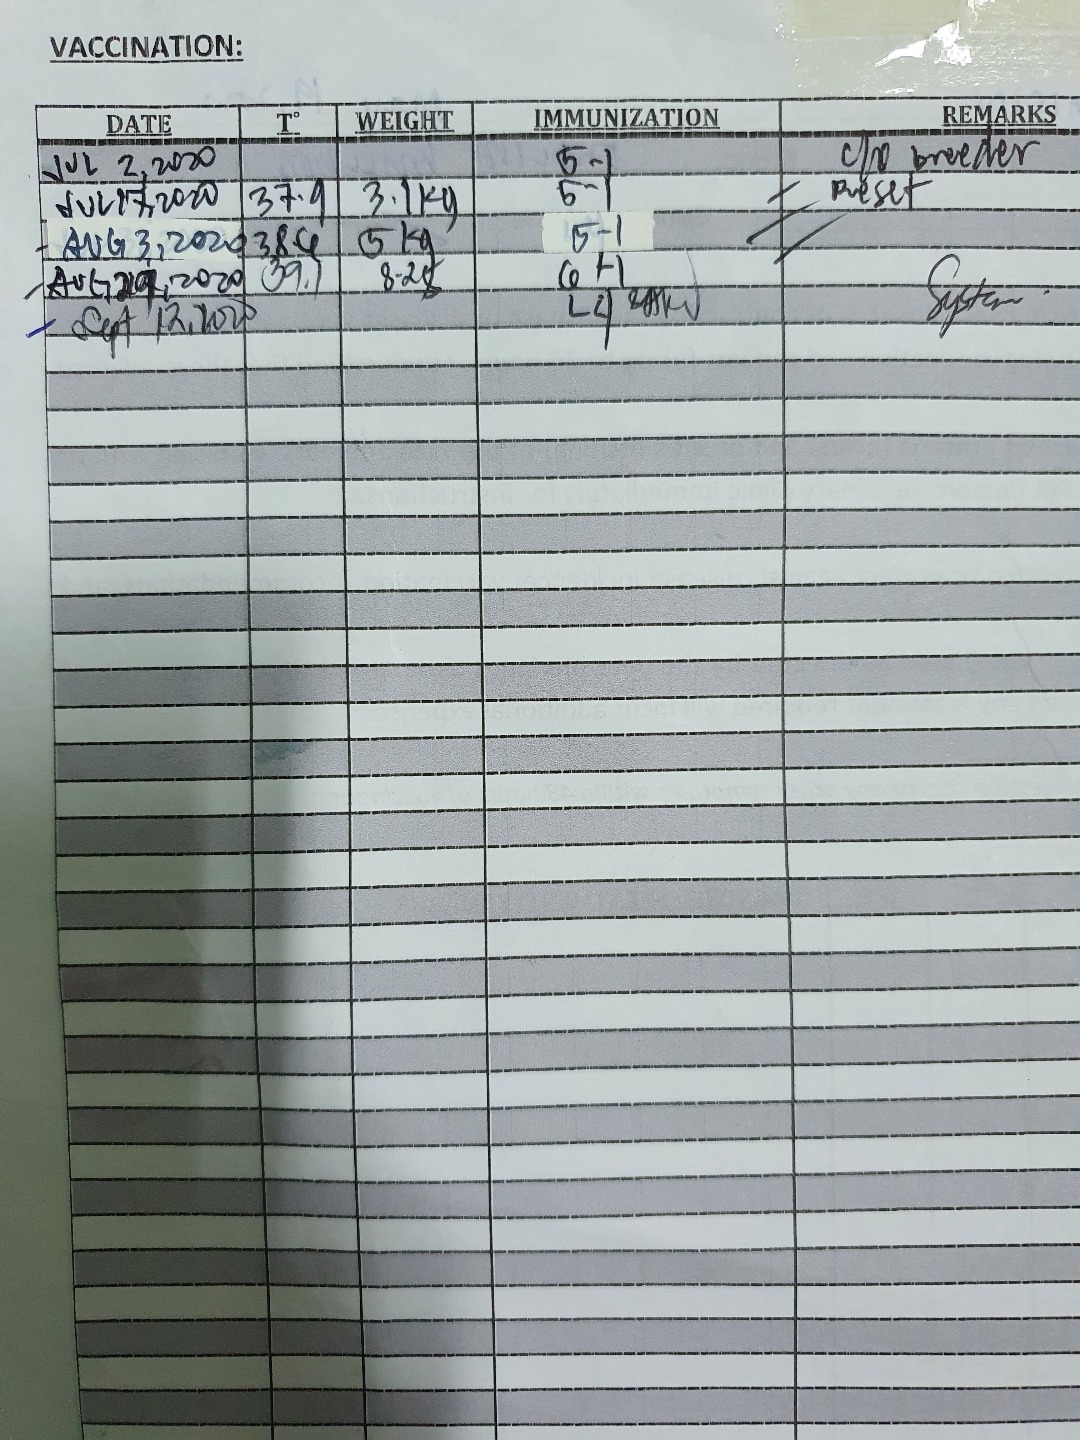 VACCINATION:
DATE T° WEIGHT IMMUNIZATION REMARKS
JUL 2, 2020 5-1 c/o breeder
JUL 17, 2020 37.9 3.1 kg 5-1
AUG 3, 2020 38.6 5 kg 5-1
AUG 2020 39.1 8.25 6-1
Sept 12, 2020 L4 System